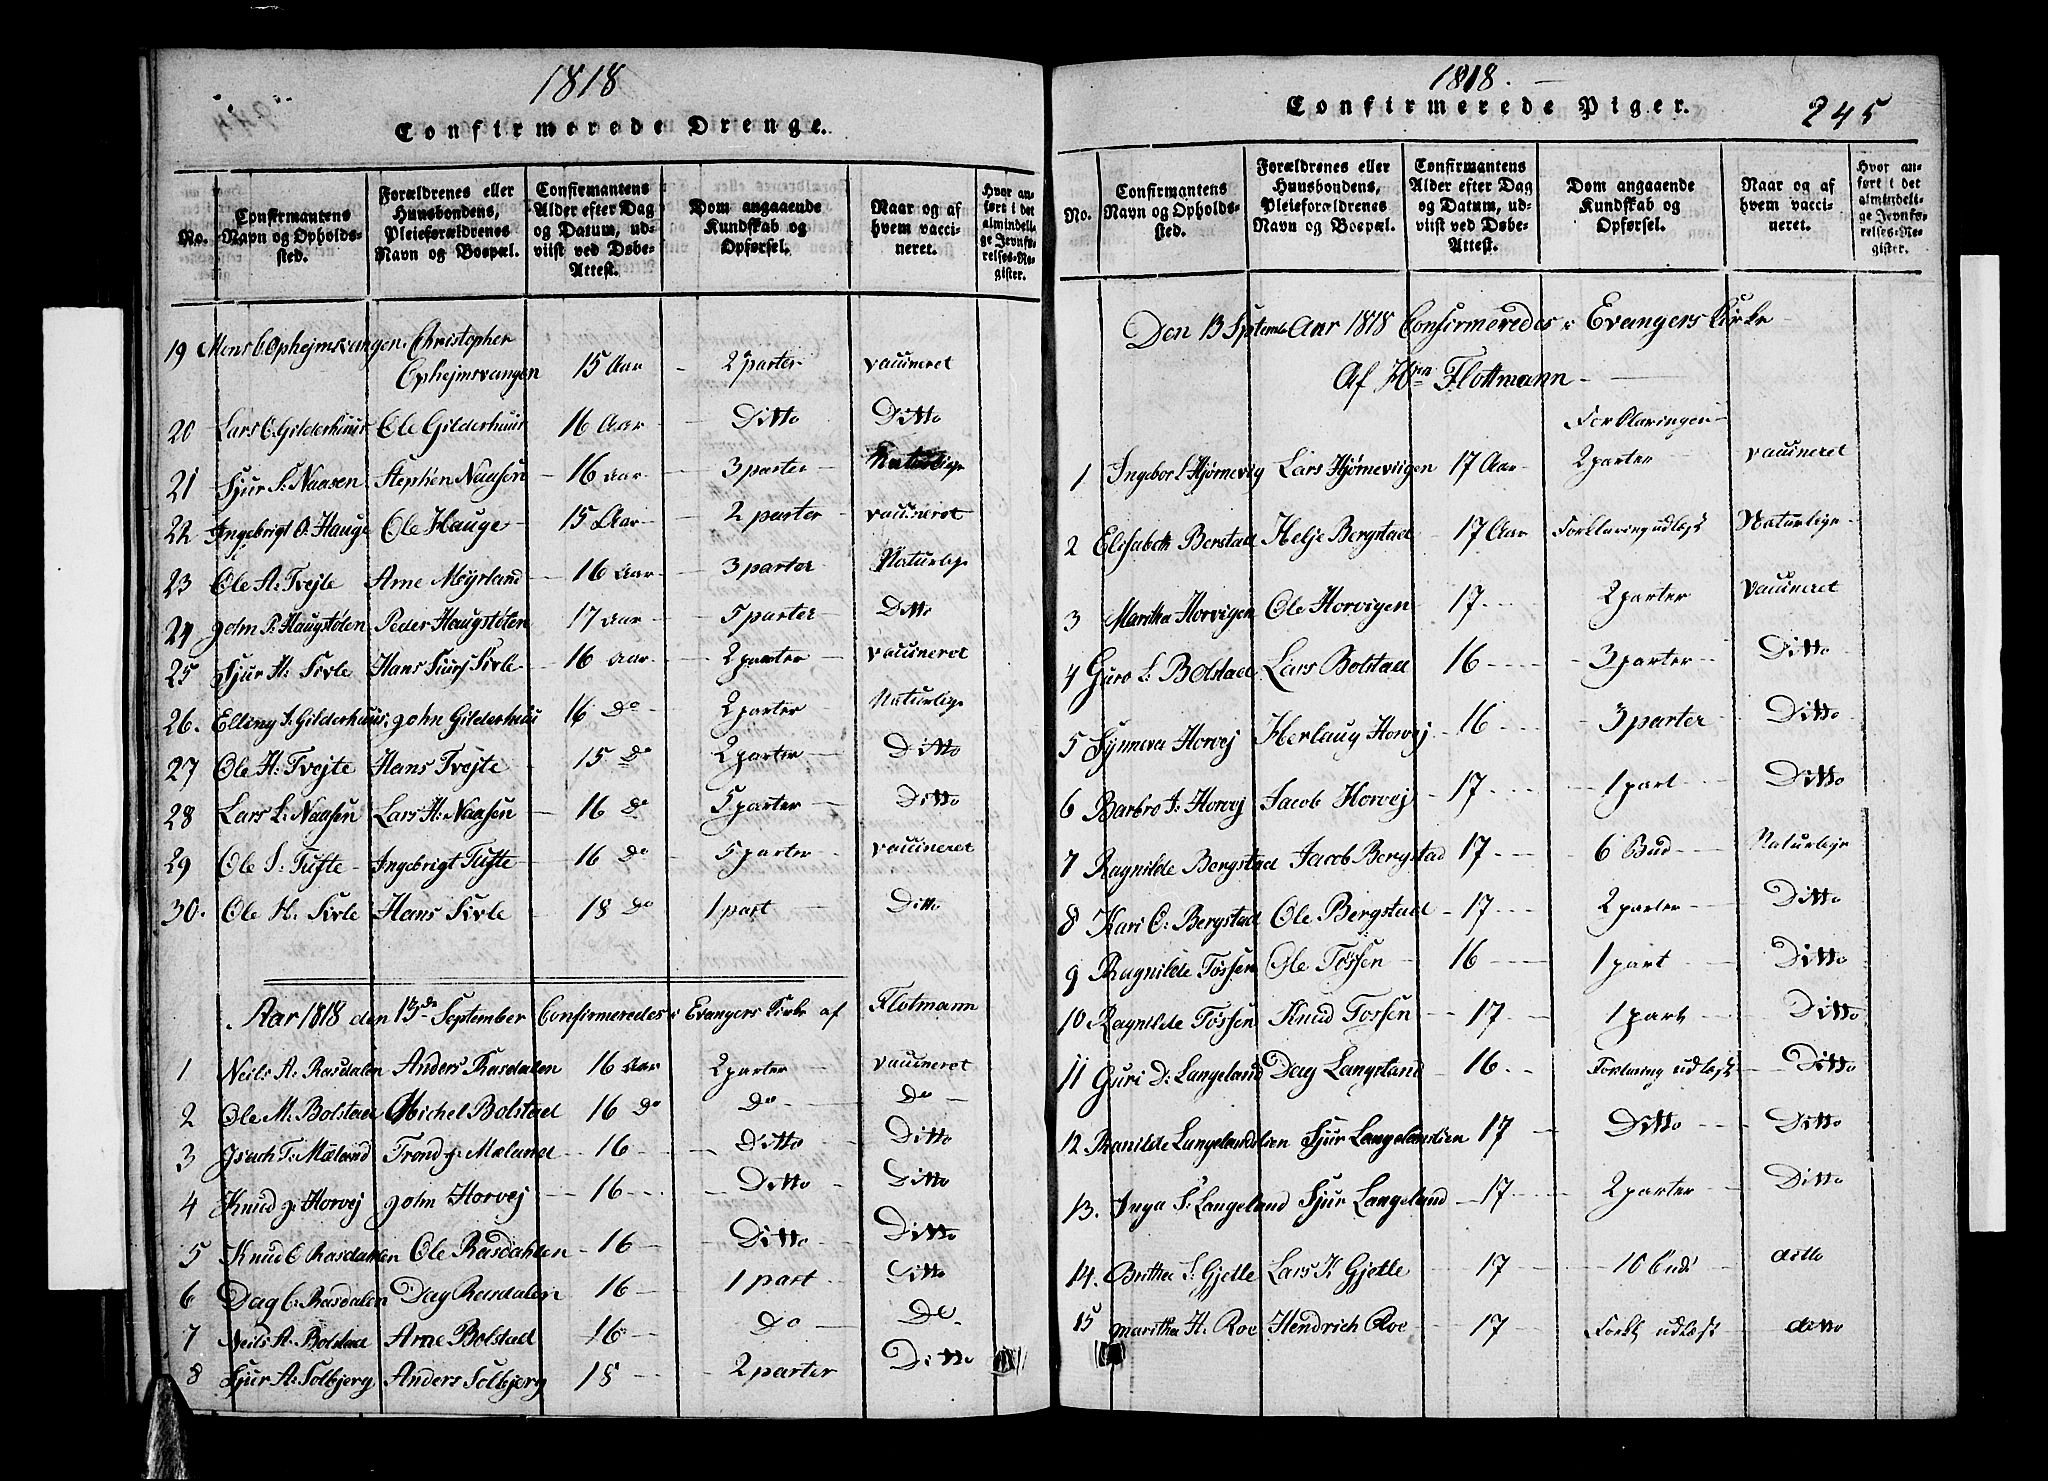 1818
Confirmerede Drenge.
No.
Confirmantens Navn og Opholdssted.
Forældrenes eller Huusbondens, Pleieforældrenes Navn og Boepæl.
Confirmantens Alder efter Dag og Datum, udviist ved Døbe-Attest.
Dom angaaende Kundskab og Opførsel.
Naar og af hvem vaccineret.
Hvor anført i det almindelige Jevnførelses-Register.
19 Mons C. Ophejmsvangen Christopher Ophejmsvangen 15 Aar 2 parter vaccineret
20 Lars O. Gilderhuus Ole Gilderhuus 16 Aar Ditto Ditto
21 Sjur S: Naasen Stephen Naasen 16 Aar 3 parter Naturlige
22 Ingebrigt O. Hauge Ole Hauge 15 Aar 2 parter vaccineret
23 Ole A: Tvejte Arne Mejsland 16 Aar 3 parter Naturlige
24 John P: Haugstølen Peder Haugstølen 17 Aar 5 parter Ditto
25 Sjur H: Sivle Hans Sivle 16 Aar 2 parter vaccineret
26. Elling J. Gilderhuus John Gilderhuus 16 Do 2 parter Naturlige
27 Ole H: Tvejte Hans Tvejte 15 Do 2 parter Ditto
28 Lars L: Naasen Lars H: Naasen 16 Do 5 parter Ditto
29 Ole I: Tufte Ingebrigt Tufte 16 Do 5 parter vaccineret
30. Ole H. Sivle Hans Sivle 18 Do 1 part Ditto
Aar 1818 den 13de September Confirmeredes i Evangers Kirke af Flotmann
1 Neils A: Rasdalen Anders Rasdalen 16 Aar 2 parter vaccineret
2 Ole M: Bolstad Michel Bolstad 16 Do Do Do
3 Isach T: Mæland Trond J: Mæland 16 Ditto Ditto
4 Knud J: Horvej John Horvej 16 Ditto Ditto
5 Knud O Rasdahlen Ole Rasdahlen 16 Ditto Ditto
6 Dag Rasdalen Dag Rasdalen 16 1 part Ditto
7 Neils A: Bolstad Arne Bolstad 16 Do Do
8 Sjur A: Solbjerg Anders Solbjerg 18 2 parter Ditto
1818.
Confirmerede Piger.
245
No.
Confirmantens Navn og Opholdssted.
Forældrenes eller Huusbondens, Pleieforældrenes Navn og Boepæl.
Confirmantens Alder efter Dag og Datum, udviist ved Døbe-Attest.
Dom angaaende Kundskab og Opførsel.
Naar og af hvem vaccineret.
Hvor anført i det almindelige Jevnførelses-Register.
Den 13 Septemb Aar 1818 Confirmeredes i Evangers Kirke
Af Hrn Flottmann
Forklaringen
1 Ingebor L Hjørnevig Lars Hjørneviigen 17 Aar 2 parter vaccineret
2 Elisabeth Berstad Helje Bergstad 17 Aar Forklaring udlæst Naturlige
3 Maritha Horvigen Ole Horvigen 17 2 parter vaccineret
4 Guro L: Bolstad Lars Bolstad 16 3 parter Ditto
5 Synneva Horvej Herlaug Horvej 16 3 parter Ditto
6 Barbro J: Horvej Jacob Horvej 17 1 part Ditto
7 Ragnilde Bergstad Jacob Bergstad 17 6 Bud Naturlige
8 Kari O: Bergstad Ole Bergstad 17 2 parter Ditto
9 Ragnilde Tøssen Ole Tøssen 16 1 part Ditto
10 Ragnilde Tøssen Knud Tossen 17 1 part Ditto
11 Guri D: Langeland Dag Langeland 16 Forklaring udlæst Ditto
12 Ranilde Langelandslien Sjur Langelandlien 17 Ditto Ditto
13. Inga S: Langeland Sjur Langeland 17 2 parter Ditto
14. Brithe L: Gjelle Lars K Gjelle 17 10 bud ditto
15 Maritha H. Roe Hendrich Roe 17 Forkl udlæst ditto